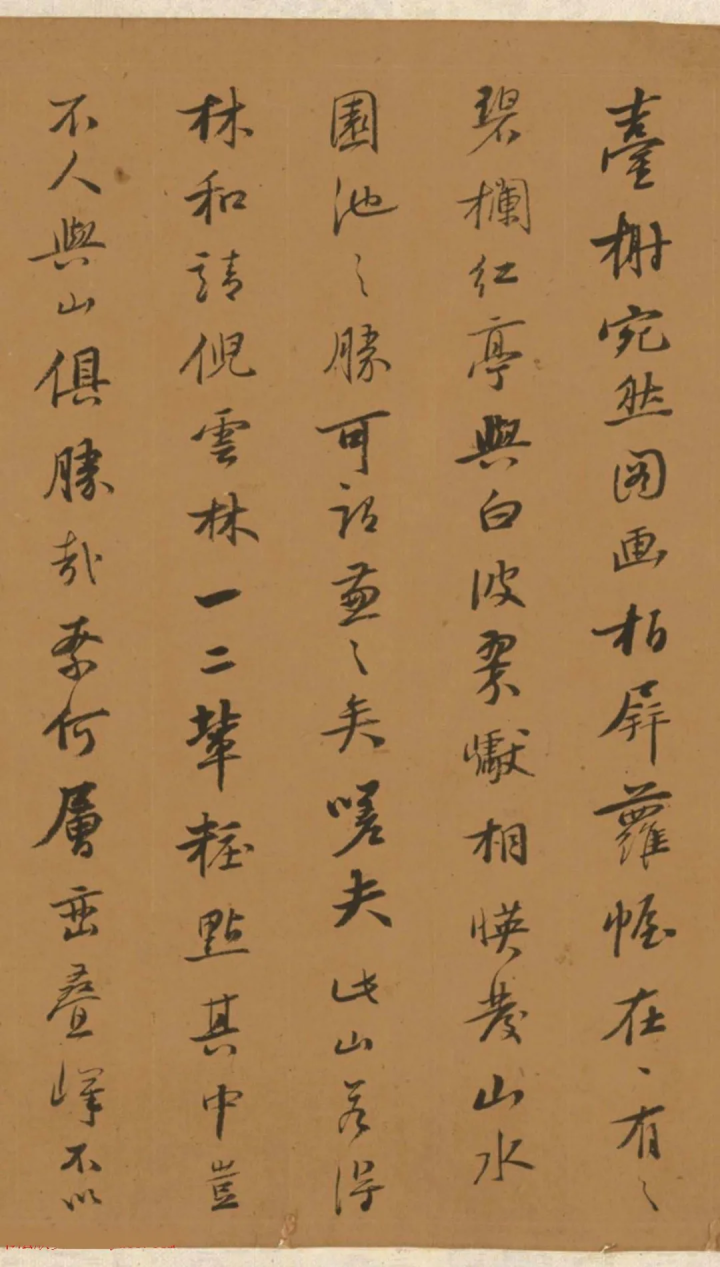 臺榭宛然图画柏屏蘿幄在〻有〻
碧欄红亭與白波翠巘相暎發山水
園池〻勝可謂兼〻矣嗟夫此山若得
林和靖倪雲林一二輩粧點其中豈
不人與山俱勝哉柰何層巒疊嶂不以